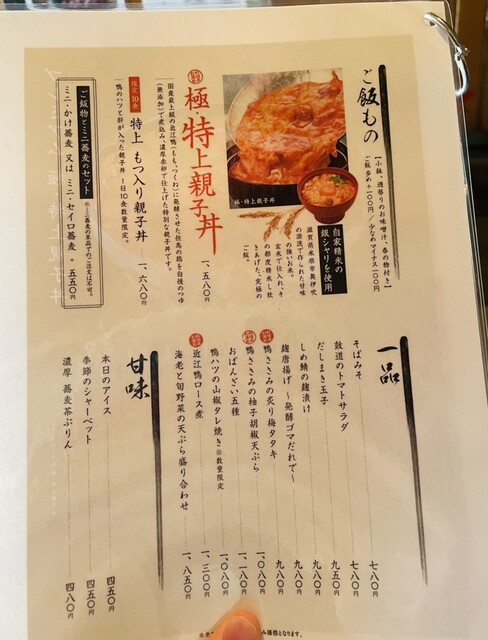 ご飯もの
(小鉢、雁替りのお味噌汁、香の物付き)
ご飯多め+100円/少なめマイナス100円
極・特上親子丼
自家精米の
銀シャリを使用
滋賀県米原市奥伊吹
の源流で作られた甘味
の強いお米。
玄米で仕入れ、そ
の都度精米し炊
きあげた、究極の
ご飯。
極・特上親子丼
一、五八〇円
国産最上級の近江鴨(もも、つくね)に発酵させた但馬の鶏を自慢のつゆ
(無添加)で煮込み、濃厚赤卵で仕上げた特別な親子丼です。
限定10食
特上 もつ入り親子丼
一、六八〇円
鴨のハツと肝が入った親子丼 1日10食数量限定。
ご飯物とミニ蕎麦のセット
※ミニ蕎麦の単品でのご注文は不可。
ミニ・かけ蕎麦 又は ミニ・セイロ蕎麦 + 五五〇円
一品
そばみそ 七八〇円
鼓道のトマトサラダ 七八〇円
だしまき玉子 九五〇円
しめ鯖の麹漬け 九八〇円
麹唐揚げ 〜発酵ゴマだれで〜 九八〇円
鴨ささみの炙り梅タタキ 九八〇円
鴨ささみの柚子胡椒天ぷら 一、〇八〇円
おばんざい五種 一、一八〇円
鴨ハツの山椒タレ焼き ※数量限定 一、〇八〇円
近江鴨ロース煮 一、三〇〇円
海老と旬野菜の天ぷら盛り合わせ 一、八五〇円
甘味
本日のアイス 四五〇円
季節のシャーベット 四五〇円
濃厚 蕎麦茶ぷりん 四八〇円